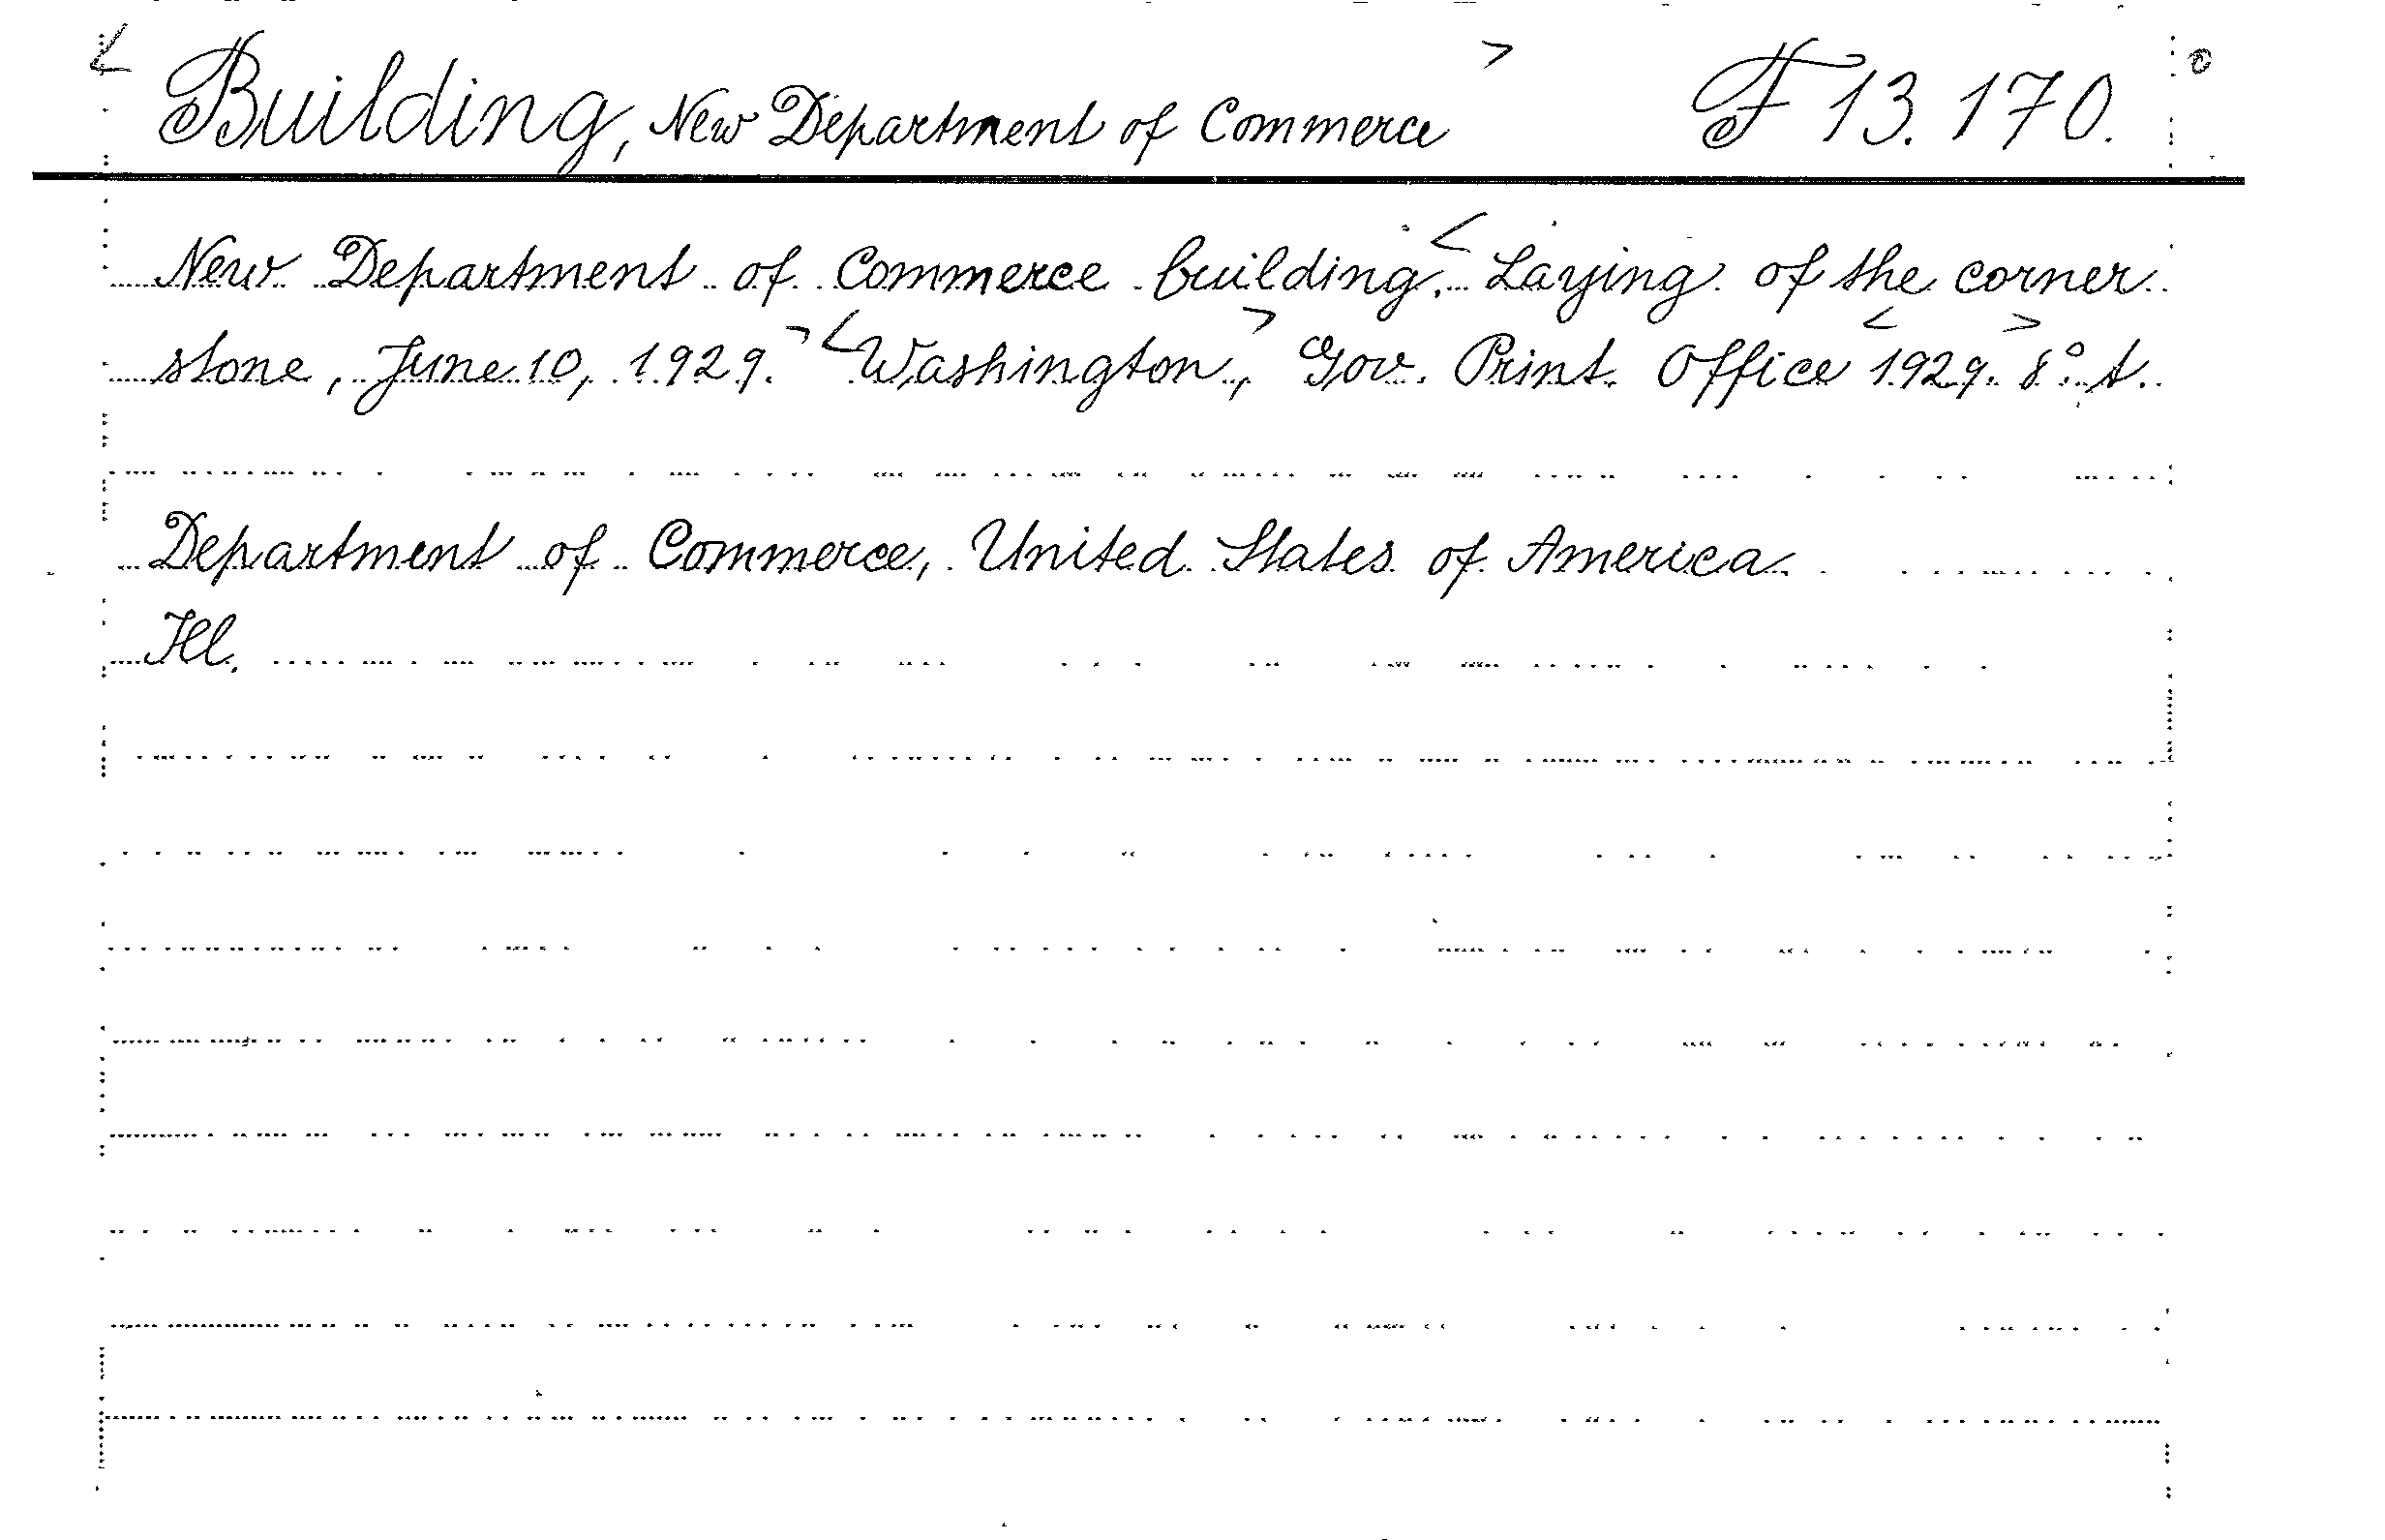 < Building, New Department of Commerce > F 13.170.
New Department of Commerce building. < Laying of the corner
stone, June 10, 1929. > < Washington, > Gov. Print. Office < 1929. > 8°. t.
Department of Commerce, United States of America.
Ill.